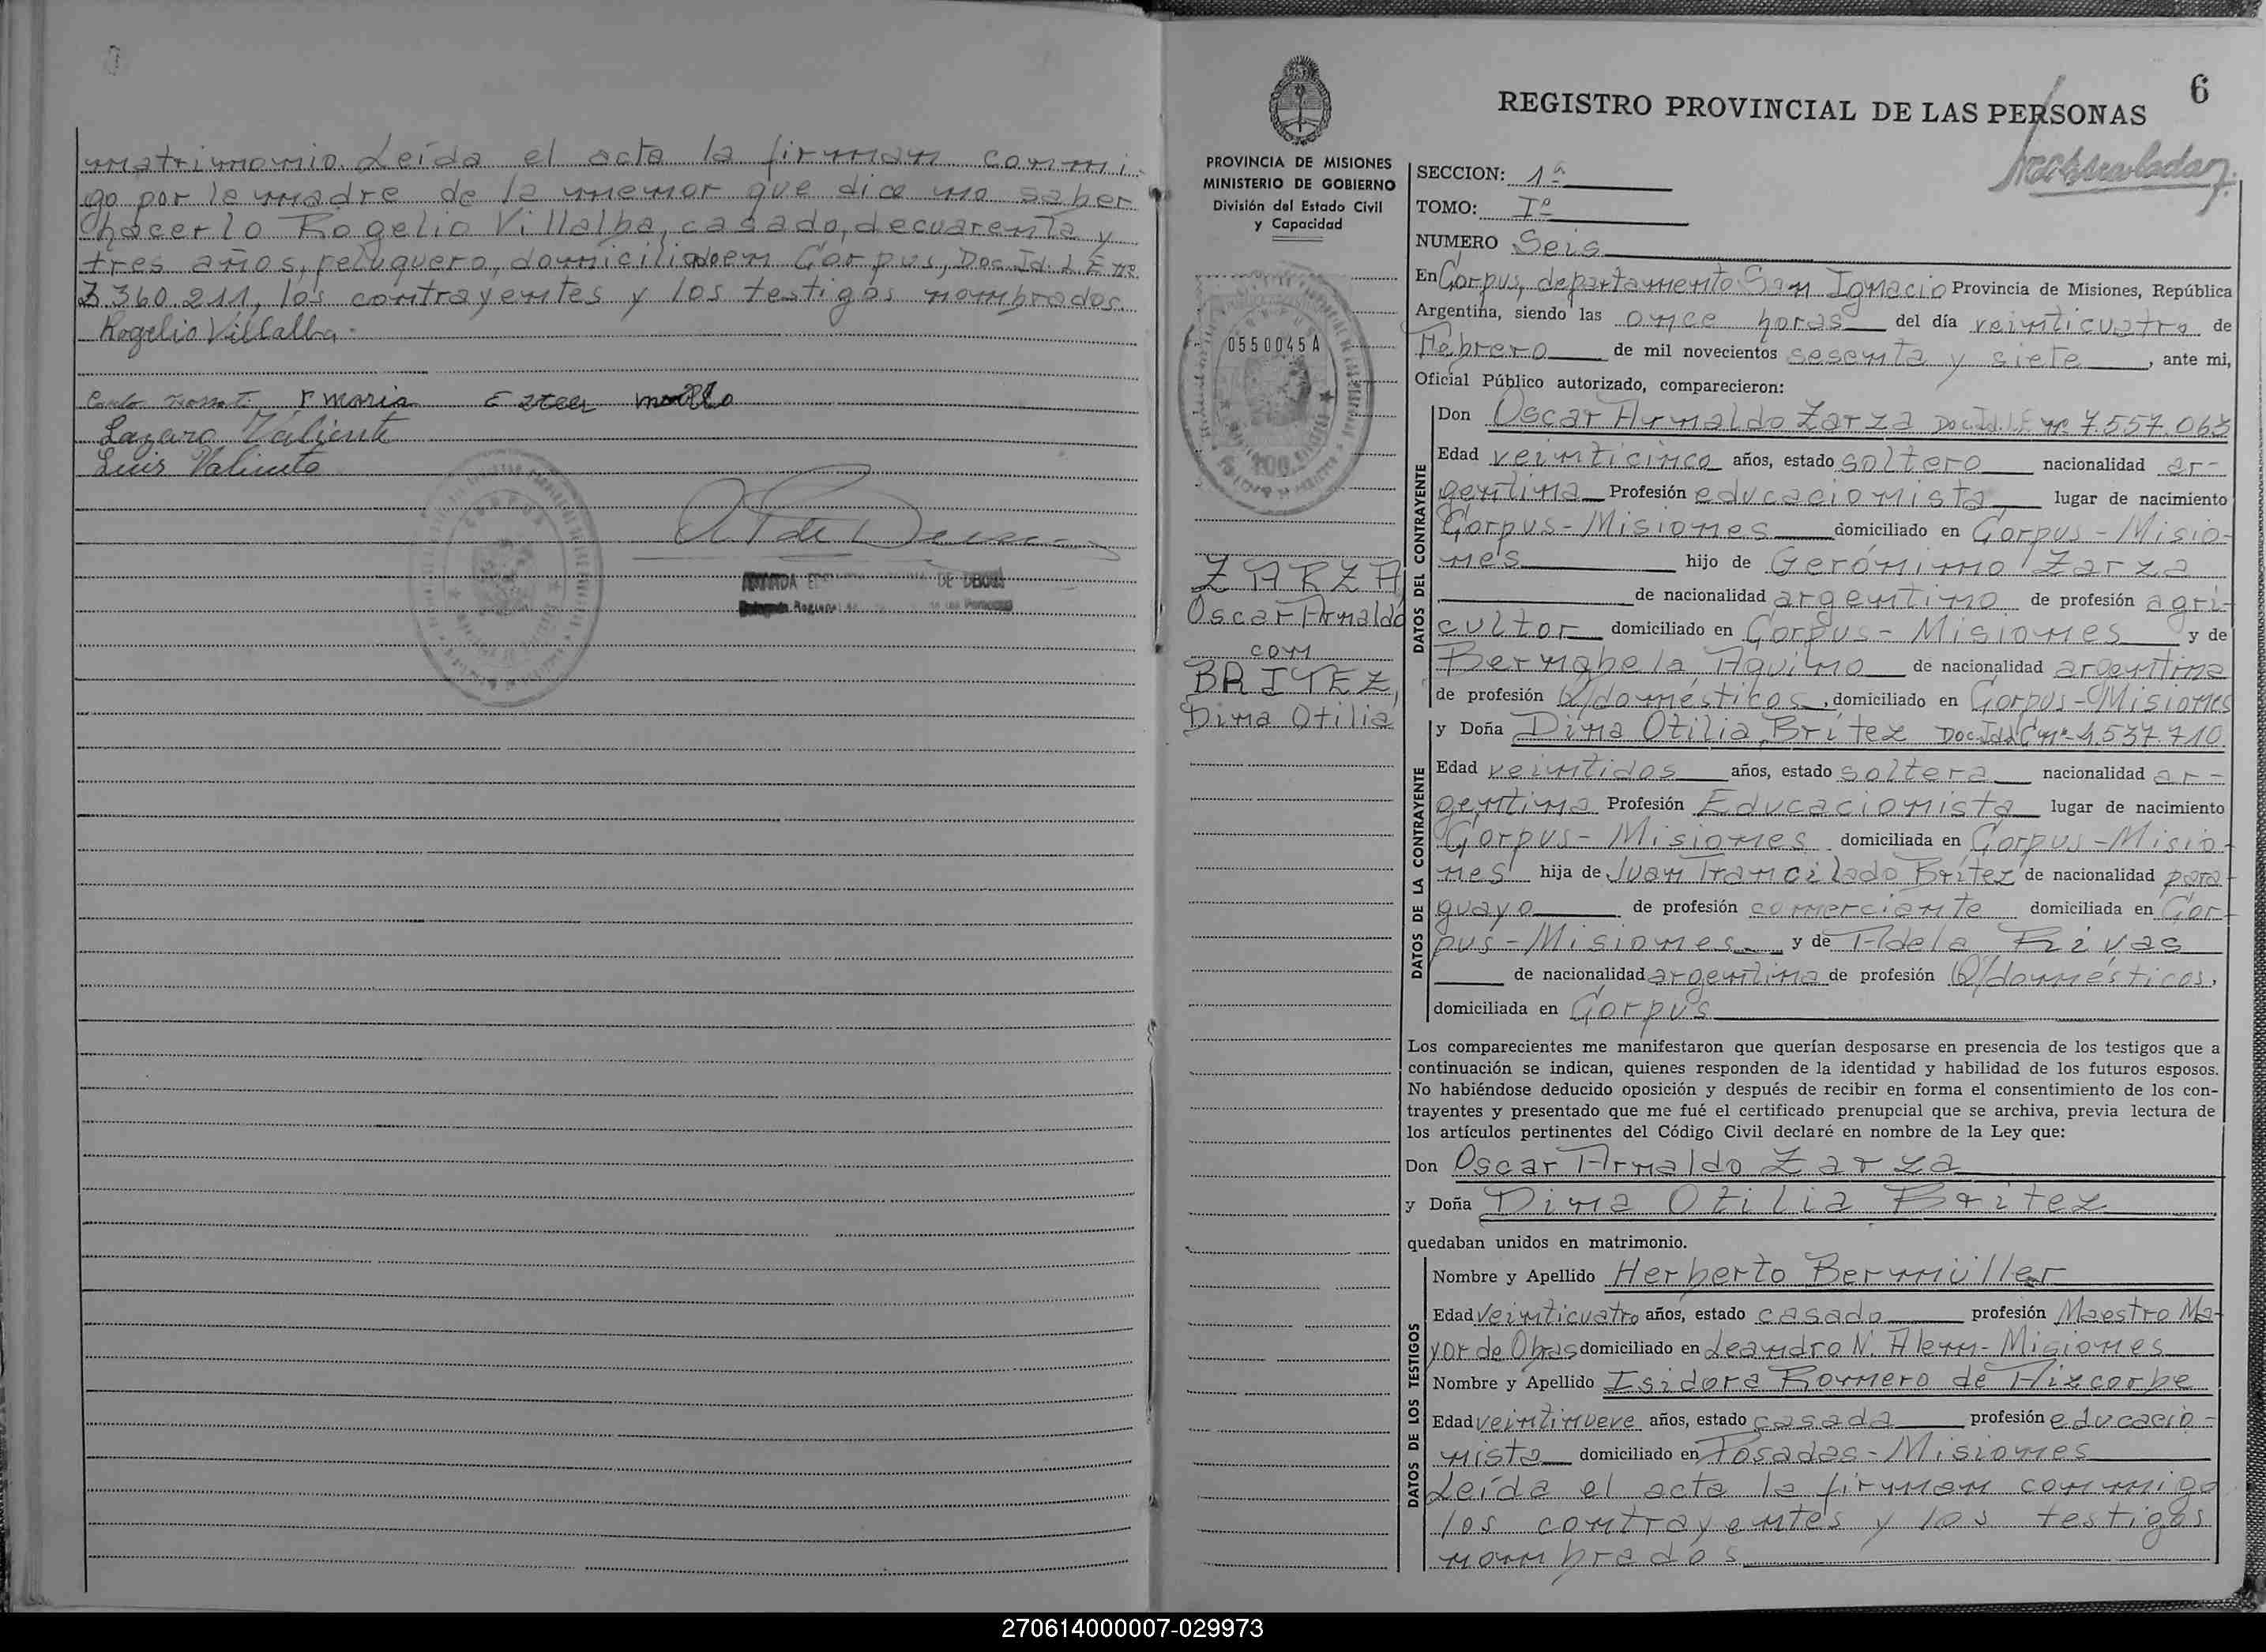 matrimonio. Leída el acta la firman conmi-
go por la madre de la menor que dice no saber
hacerlo Rogelio Villalba, casado, de cuarenta y
tres años, peluquero, domiciliado en Corpus, Doc. Id. L E nº
3.360.211, los contrayentes y los testigos nombrados.
Rogelio Villalba
maria
Lazaro Valiente
Luis Valiente
6
REGISTRO PROVINCIAL DE LAS PERSONAS
PROVINCIA DE MISIONES
MINISTERIO DE GOBIERNO
División del Estado Civil
y Capacidad
0550045A
ZARZA
Oscar Arnaldo
con
BRITEZ,
Dina Otilia
SECCION: 1ª
TOMO: Iº
NUMERO Seis
En Corpus, departamento San Ignacio Provincia de Misiones, República
Argentina, siendo las once horas del día veinticuatro de
Febrero de mil novecientos sesenta y siete, ante mi,
Oficial Público autorizado, comparecieron:
DATOS DEL CONTRAYENTE
Don Oscar Arnaldo Zarza Doc. Id. L.E. nº 7.557.063
Edad veinticinco años, estado soltero nacionalidad ar-
gentina Profesión educacionista, lugar de nacimiento
Corpus - Misiones domiciliado en Corpus - Misio-
nes hijo de Gerónimo Zarza
de nacionalidad argentino de profesión agri-
cultor domiciliado en Corpus - Misiones y de
Bernabela Aquino de nacionalidad argentina
de profesión Q/domésticos, domiciliado en Corpus - Misiones
DATOS DE LA CONTRAYENTE
y Doña Dina Otilia Britez Doc. Id. L C nº 4.537.710
Edad veintidos años, estado soltera nacionalidad ar-
gentina Profesión Educacionista lugar de nacimiento
Corpus - Misiones domiciliada en Corpus - Misio-
nes hija de Juan Trancilado Britez de nacionalidad para-
guayo de profesión comerciante domiciliada en Cor-
pus - Misiones y de Adela Rivas
de nacionalidad argentina de profesión Q/domésticos,
domiciliada en Corpus
Los comparecientes me manifestaron que querían desposarse en presencia de los testigos que a
continuación se indican, quienes responden de la identidad y habilidad de los futuros esposos.
No habiéndose deducido oposición y después de recibir en forma el consentimiento de los con-
trayentes y presentado que me fué el certificado prenupcial que se archiva, previa lectura de
los artículos pertinentes del Código Civil declaré en nombre de la Ley que:
Don Oscar Arnaldo Zarza
y Doña Dina Otilia Britez
quedaban unidos en matrimonio.
DATOS DE LOS TESTIGOS
Nombre y Apellido Herberto Bermüller
Edad veinticuatro años, estado casado profesión Maestro Ma-
yor de Obras domiciliado en Leandro N. Alem - Misiones
Nombre y Apellido Isidora Romero de Aizcorbe
Edad veintinueve años, estado casada profesión educacio-
nista domiciliado en Posadas - Misiones
Leída el acta la firman conmigo
los contrayentes y los testigos
nombrados
270614000007-029973